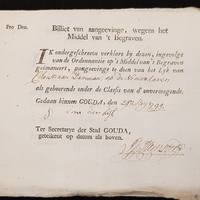 Pro Deo.
Billiet van aangeevinge, wegens het
Middel van 't Begraven.
IK ondergeschreeve verklare by dezen, ingevolge
van de Ordonnantie op 't Middel van 't Begraven
geëmaneert, aangeevinge te doen van het Lyk van
als gehoorende onder de Classis van d' onvermogende.
Gedaan binnen GOUDA, den
Ter Secretarye der Stad GOUDA,
geteikent op datum als boven.